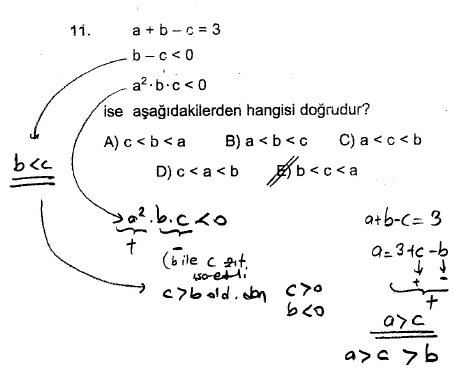 11. a + b – c = 3
b – c < 0
a²·b·c < 0
ise aşağıdakilerden hangisi doğrudur?
A) c < b < a B) a < b < c C) a < c < b
D) c < a < b E) b < c < a
b<c
a².b.c<0
+ -
(b ile c zıt
işaretli
c>b old.dan c>0
b<0
a+b-c=3
a=3+c-b
+ -
+
a>c
a>c>b